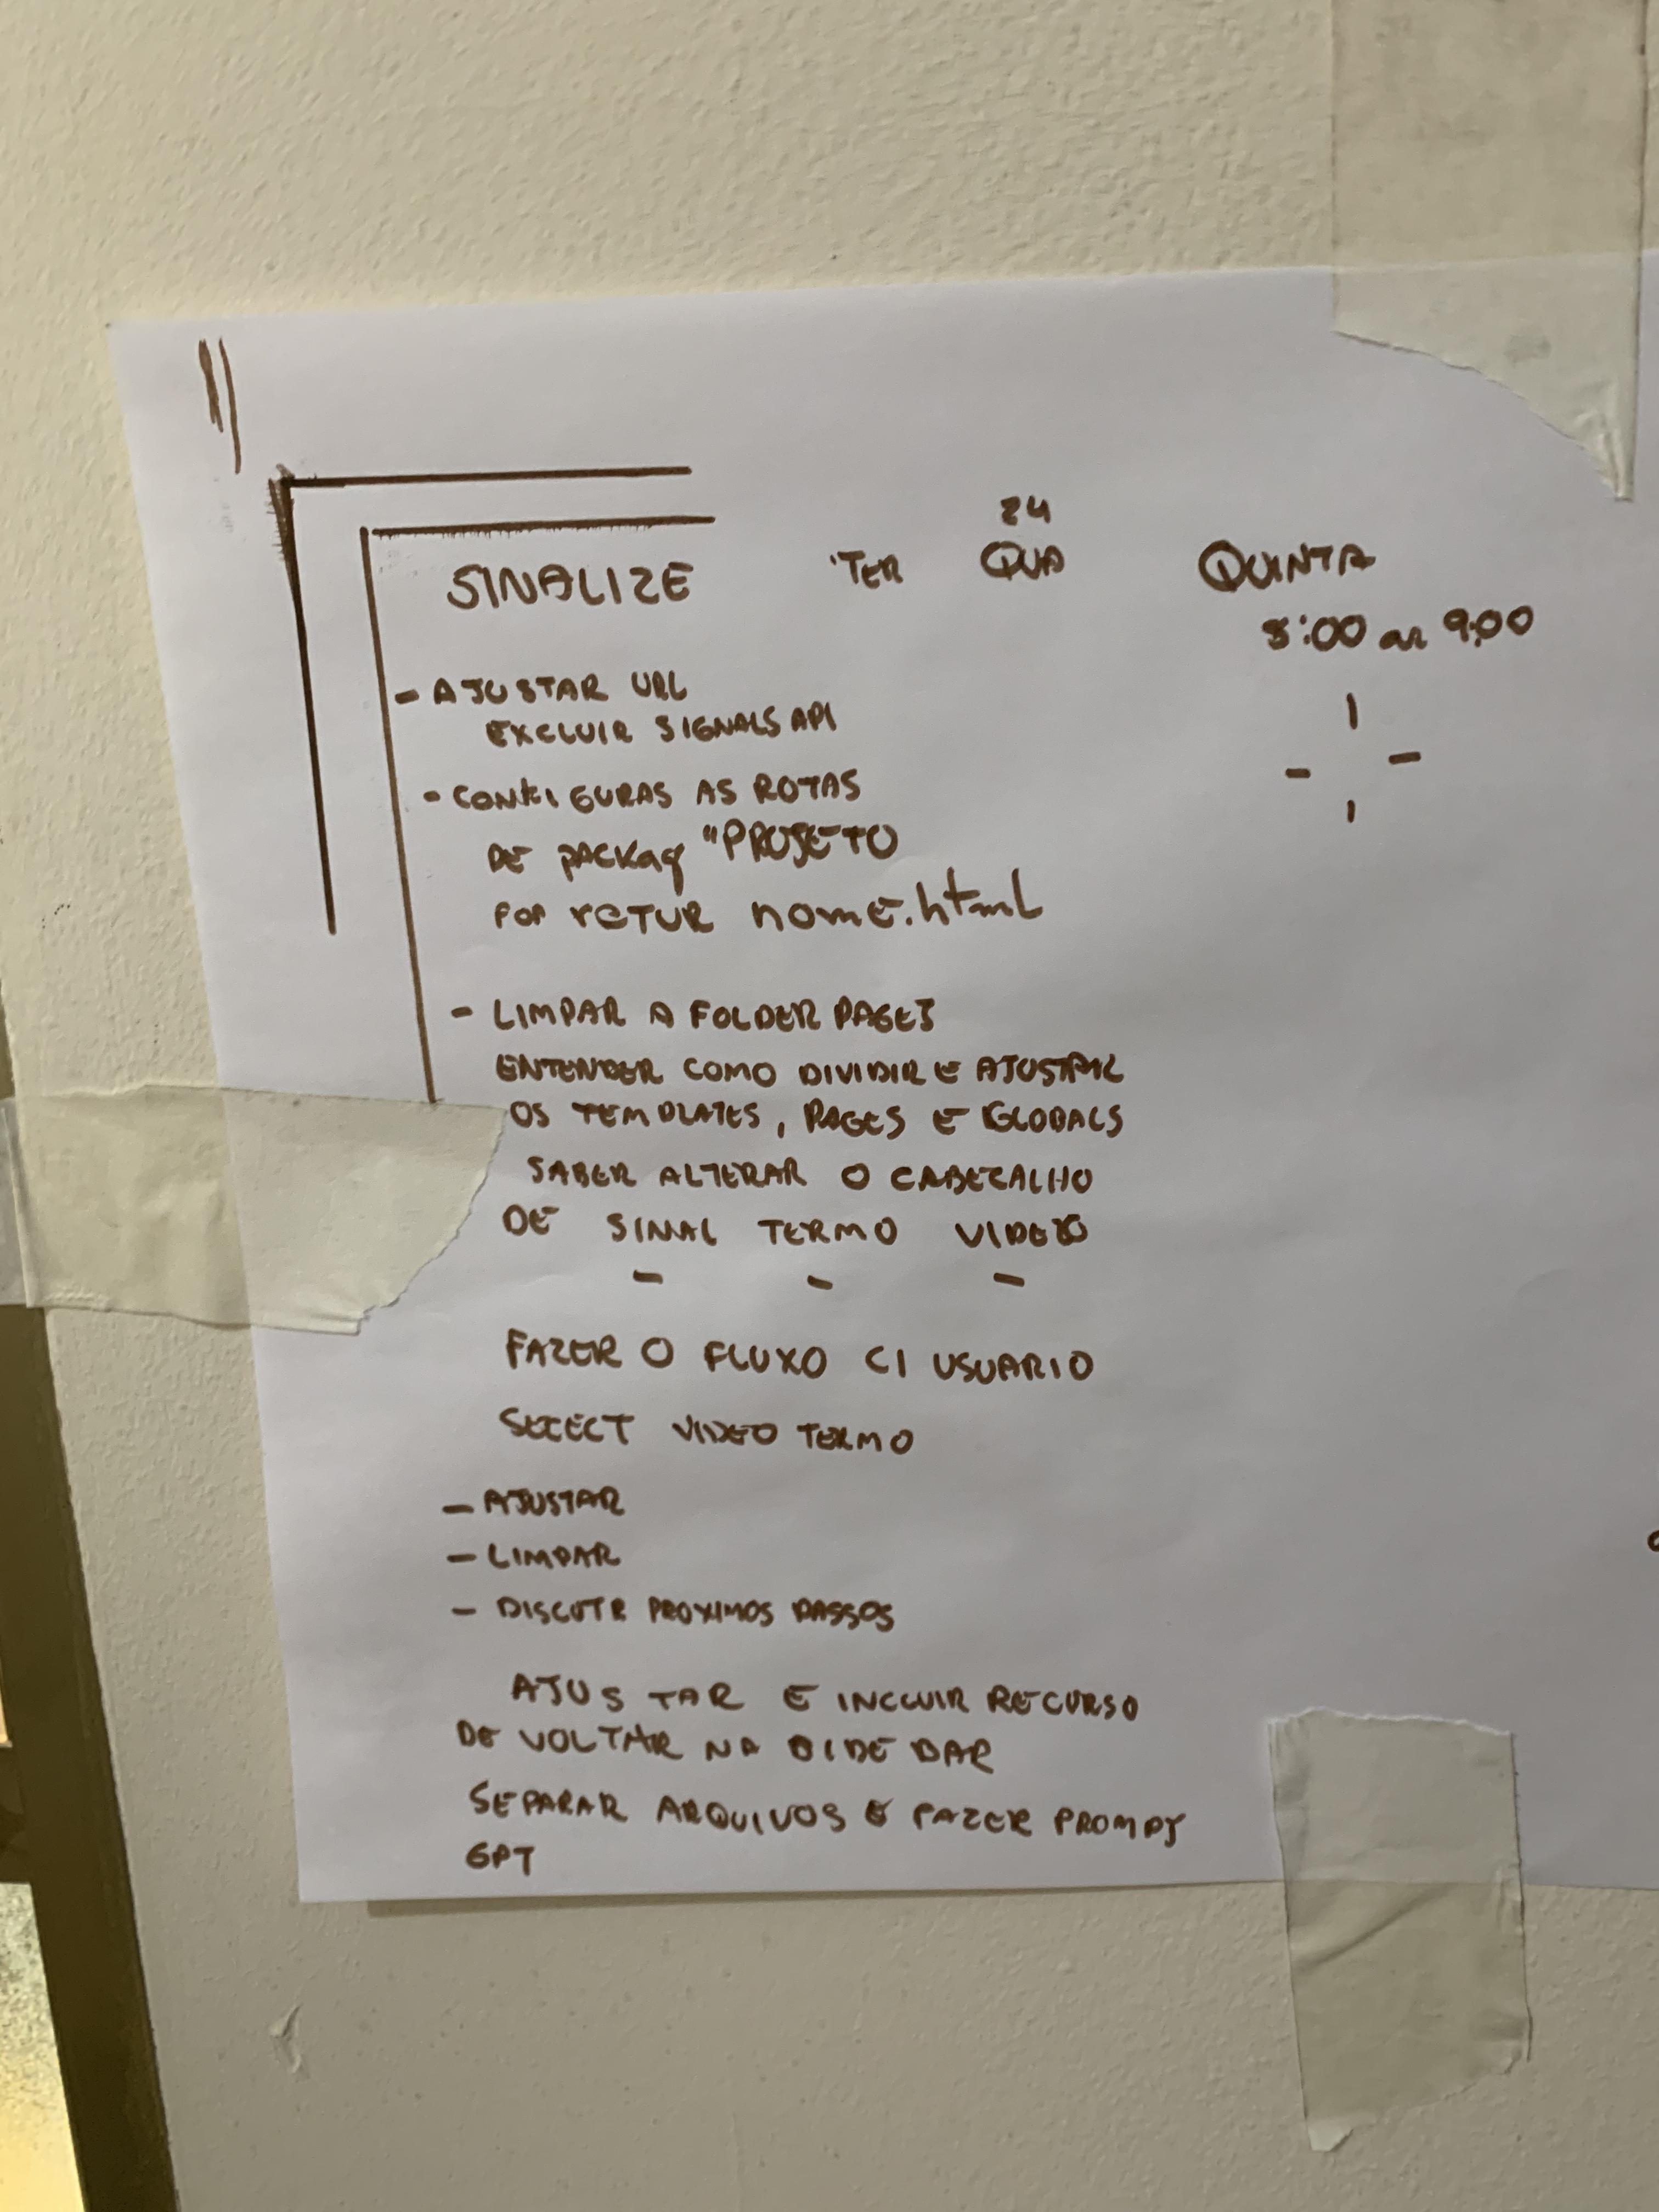 24
SINALIZE 'TER QUA QUINTA
8:00 as 9:00
- AJUSTAR URL
EXCLUIR SIGNALS API
- CONFIGURAS AS ROTAS
DE packag "PROJETO
POR retur nome.html
- LIMPAR A FOLDER PAGES
ENTENDER COMO DIVIDIR E AJUSTAR
OS TEMPLATES, PAGES E GLOBALS
SABER ALTERAR O CABEZALHO
DE SINAL TERMO VIDEO
- - -
FAZER O FLUXO C/ USUARIO
SELECT VIDEO TERMO
- AJUSTAR
- LIMPAR
- DISCUTR PROXIMOS PASSOS
AJUSTAR E INCLUIR RECURSO
DE VOLTAR NA SIDE BAR
SEPARAR ARQUIVOS E FAZER
GPT